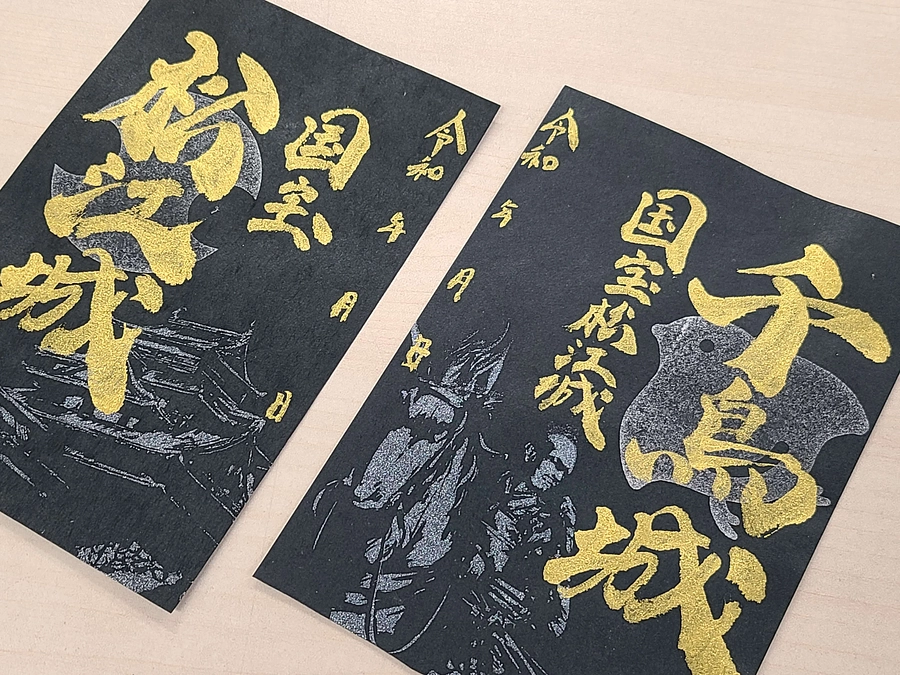 令和 年 月 日
国宝
松江城
千鳥城
国宝松江城
令和 年 月 日